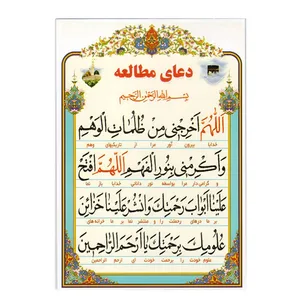 دعای مطالعه
بسم الله الرحمن الرحیم
اَللّهُمَّ اَخْرِجْنی مِنْ ظُلُماتِ الْوَهْمِ
خدایا بیرون آور مرا از تاریکیهای وهم
وَ اَکْرِمْنی بِنُورِ الْفَهْمِ اَللّهُمَّ افْتَحْ
و گرامی دار مرا بواسطه نور دانائی خدایا باز نما
عَلَیْنا اَبْوابَ رَحْمَتِکَ وَانْشُرْ عَلَیْنا خَزائِنَ
بر ما درهای رحمتت را و منتشر نما بر ما خزانه های
عُلُومِکَ بِرَحْمَتِکَ یا اَرْحَمَ الرّاحِمینَ
علوم خودت را برحمت خودت ای ارحم الراحمین